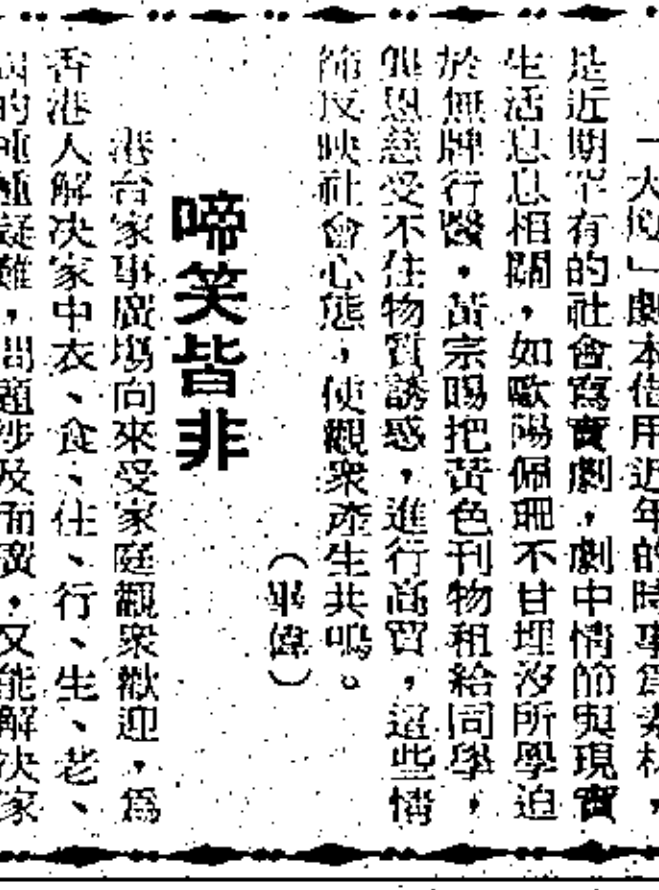 「大廈」劇本借用近年的時事為素材，
是近期罕有的社會寫實劇，劇中情節與現實
生活息息相關，如歐陽佩珊不甘埋沒所學迫
於無牌行醫，黃宗賜把黃色刊物租給同學，
與恩慈受不住物質誘惑，進行商買，這些情
節反映社會心態，使觀眾產生共鳴。
（畢偉）
啼笑皆非
港台家事廣塲向來受家庭觀眾歡迎，為
香港人解決家中衣、食、住、行、生、老、
的種種疑難，問題涉及而廣，又能解決家